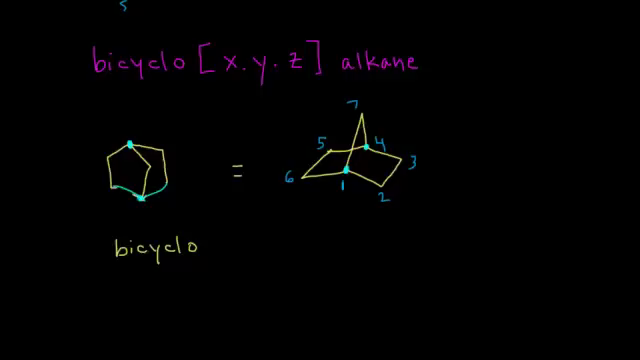 5
bicyclo [x.y.z] alkane
7
5 4
3
6 1
2
bicyclo